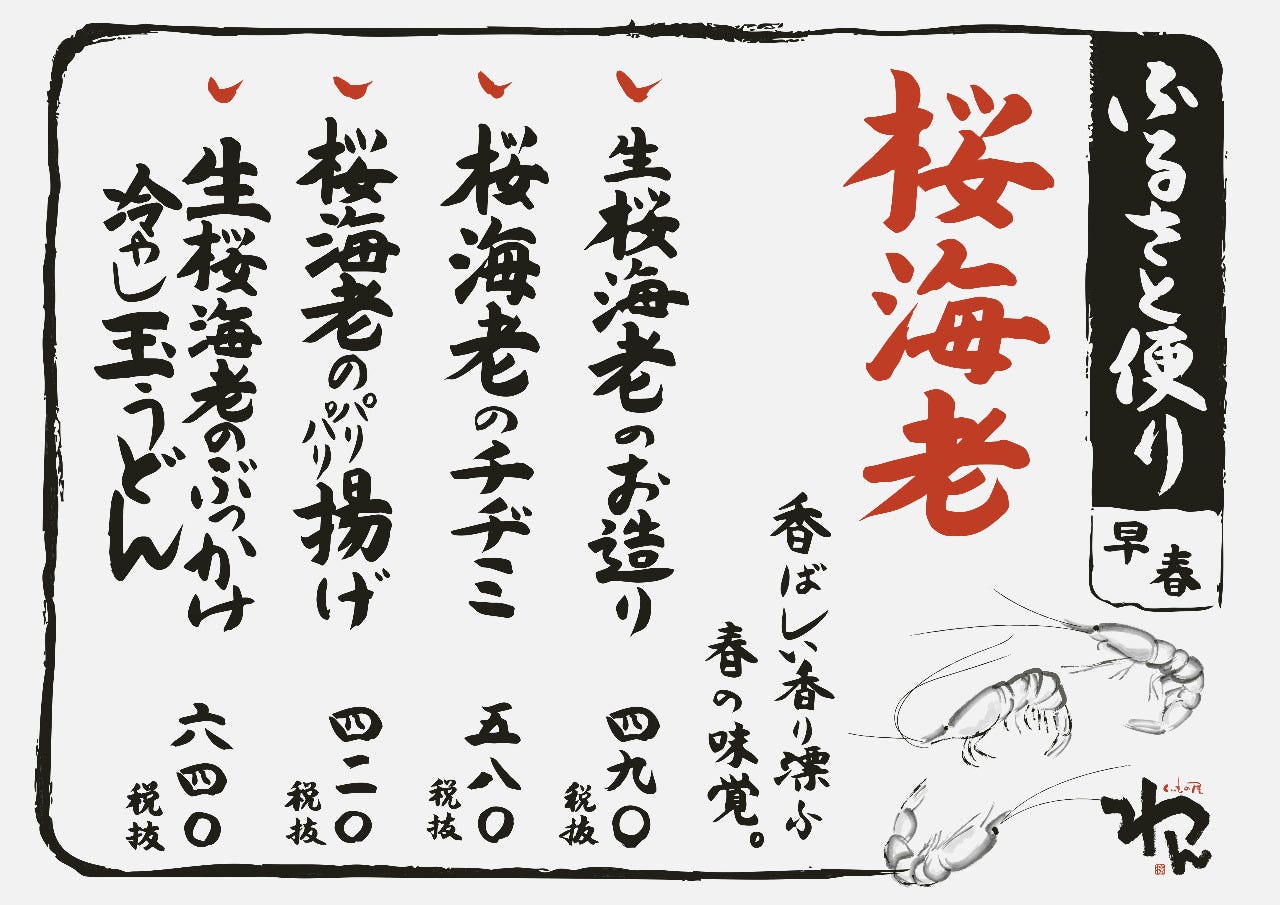 ふるさと便り
早春
桜海老
香ばしい香り漂ふ
春の味覚。
生桜海老のお造り
四九〇
税抜
桜海老のチヂミ
五八〇
税抜
桜海老のパリパリ揚げ
四二〇
税抜
生桜海老のぶっかけ
冷やし玉うどん
六四〇
税抜
くいもの屋
わん